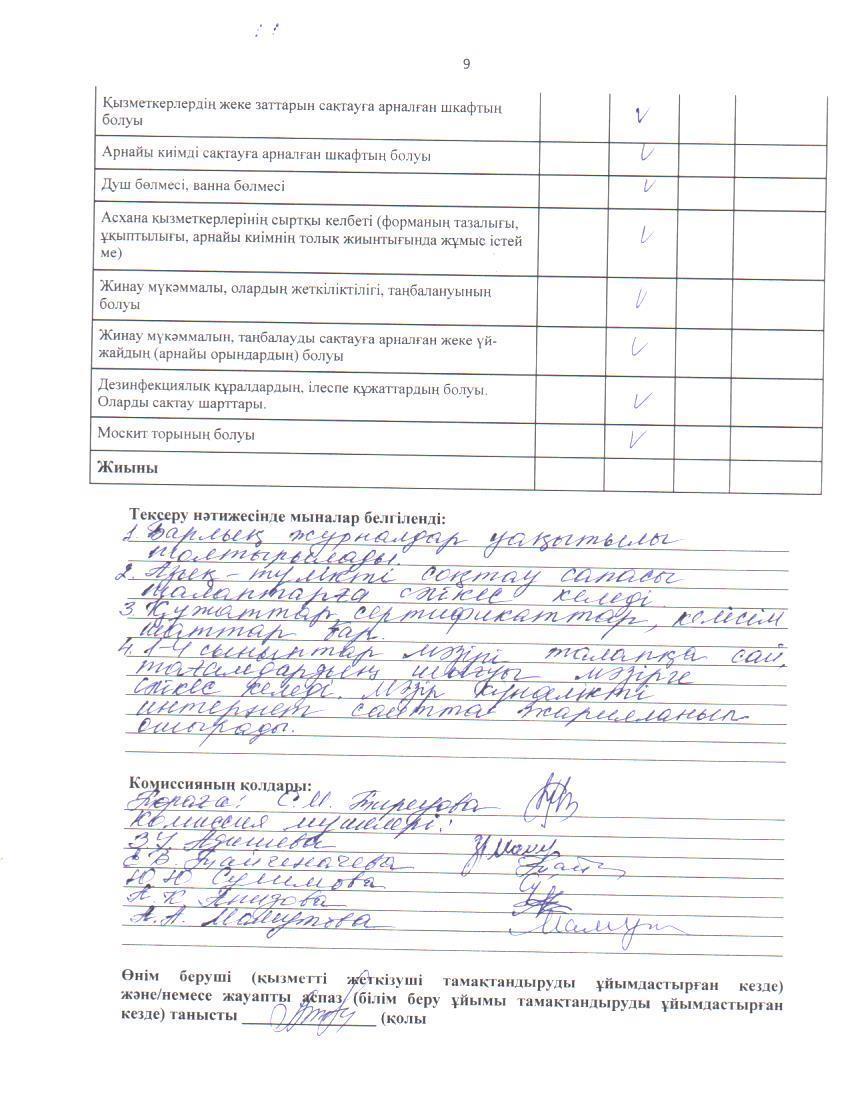 9
Қызметкерлердің жеке заттарын сақтауға арналған шкафтың
болуы
V
Арнайы киімді сақтауға арналған шкафтың болуы
V
Душ бөлмесі, ванна бөлмесі
V
Асхана қызметкерлерінің сыртқы келбеті (форманың тазалығы,
ұқыптылығы, арнайы киімнің толық жиынтығында жұмыс істей
ме)
V
Жинау мүкәммалы, олардың жеткіліктілігі, таңбалануының
болуы
V
Жинау мүкәммалын, таңбалауды сақтауға арналған жеке үй-
жайдың (арнайы орындардың) болуы
V
Дезинфекциялық құралдардың, ілеспе құжаттардың болуы.
Оларды сақтау шарттары.
V
Москит торының болуы
V
Жиыны
Тексеру нәтижесінде мыналар белгіленді:
1. Барлық журналдар уақытылы
толтырылады.
2. Азық-түлікті сақтау сапасы
талаптарға сәйкес келеді.
3. Құжаттар, сертификаттар, келісім
шаттар бар.
4. 1-4 сыныптар мәзірі талапқа сай,
тағамдардың шығуы мәзірге
сәйкес келеді. Мәзір күнделікті
интернет сайтта жарияланып
отырады.
Комиссияның қолдары:
Төраға: С.М.
Комиссия мүшелері:
З.У.
Е В.
Ю Ю
А. К
А.А.
Өнім беруші (қызметті жеткізуші тамақтандыруды ұйымдастырған кезде)
және/немесе жауапты аспаз (білім беру ұйымы тамақтандыруды ұйымдастырған
кезде) танысты ________________ (қолы